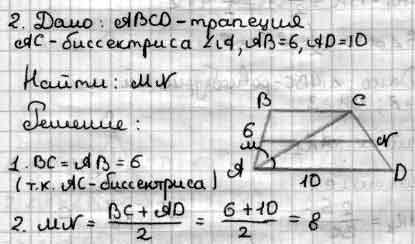 2. Дано: ABCD-трапеция
AC-биссектриса ∠A, AB=6, AD=10
Найти: MN
Решение:
B
C
6
M
N
A
D
10
1. BC = AB = 6
(т.к. AC-биссектриса)
2. MN = (BC + AD)/2 = (6 + 10)/2 = 8